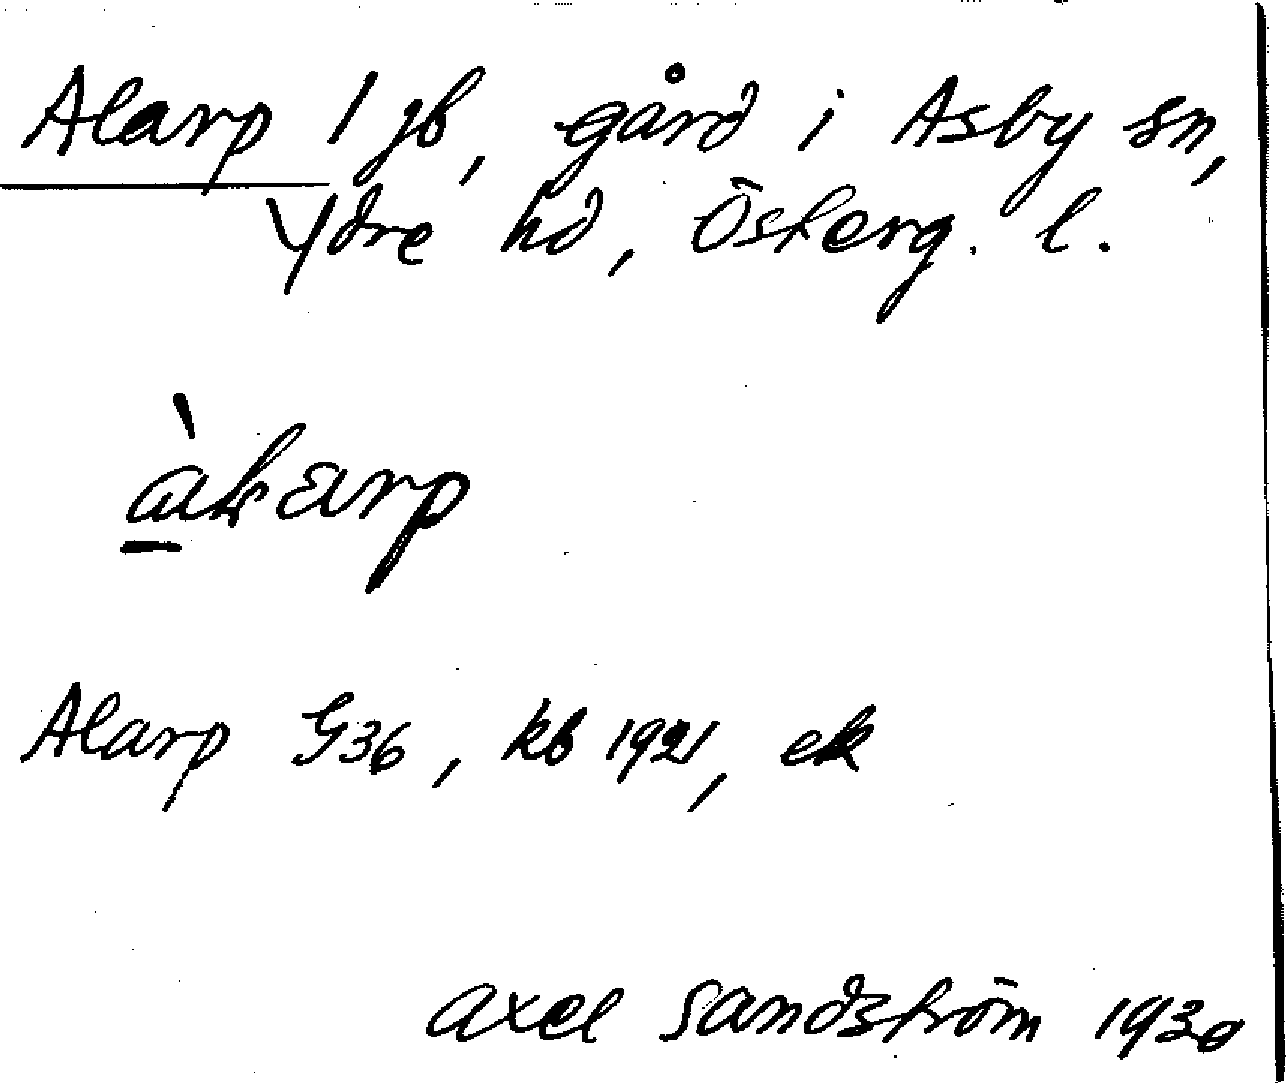 Alarp 1 jb, gård i Asby sn,
Ydre hd, Österg. l.
Alarp G36, kb 1921, ek
Axel Sandström 1930